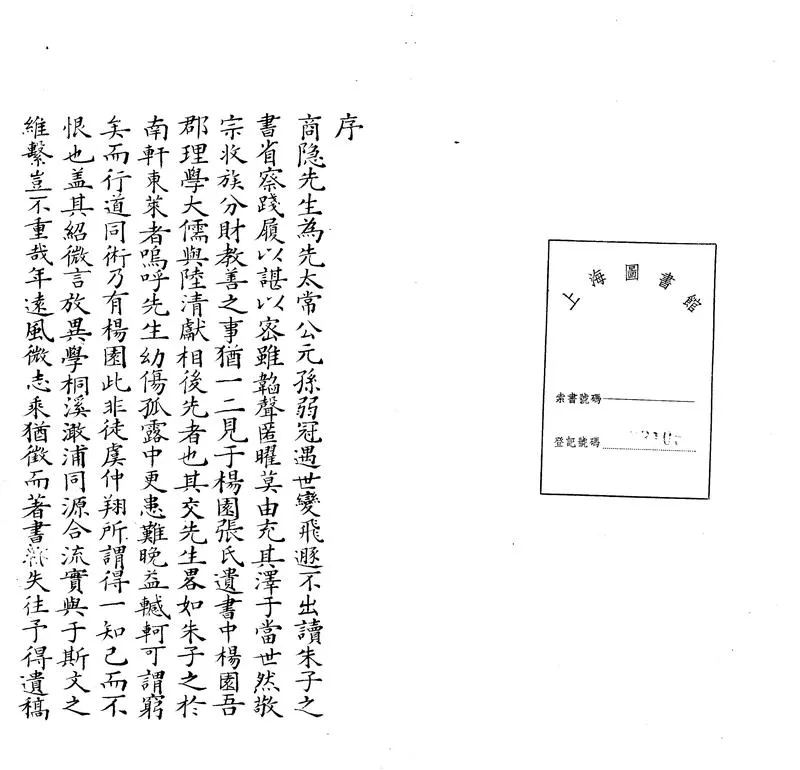 上海圖書館
索書號碼
登記號碼
序
商隐先生為先太常公元孫弱冠遇世變飛遯不出讀朱子之
書省察踐履以諶以密雖韜聲匿曜莫由充其澤于當世然敬
宗收族分財教善之事猶一二見于楊園張氏遺書中楊園吾
郡理學大儒與陸清獻相後先者也其交先生畧如朱子之於
南軒東萊者嗚呼先生幼傷孤露中更患難晚益轗軻可謂窮
矣而行道同術乃有楊園此非徒虞仲翔所謂得一知己而不
恨也盖其紹微言放異學桐溪澉浦同源合流實與于斯文之
維繫豈不重哉年遠風微志乘猶徵而著書失往予得遺稿